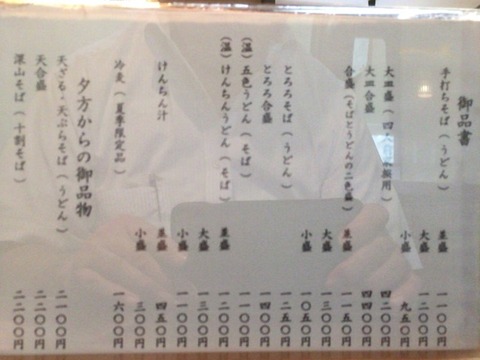 御品書
手打ちそば（うどん） 並盛 一一〇〇円
大盛 一二〇〇円
小盛 九五〇円
大皿盛（四人 用） 四二〇〇円
大皿合盛 四四〇〇円
合盛（そばとうどんの二色盛） 並盛 一一五〇円
大盛 一三〇〇円
小盛 一〇五〇円
とろろそば（うどん） 一二五〇円
とろろ合盛 一四〇〇円
（温）五色うどん（そば） 一一〇〇円
（温）けんちんうどん（そば） 並盛 一二〇〇円
大盛 一三〇〇円
小盛 一一〇〇円
けんちん汁 並盛 四五〇円
小盛 三〇〇円
冷麦（夏季限定品） 一六〇〇円
夕方からの御品物
天ざる・天ぷらそば（うどん） 二一〇〇円
天合盛 二二〇〇円
深山そば（十割そば） 二二〇〇円